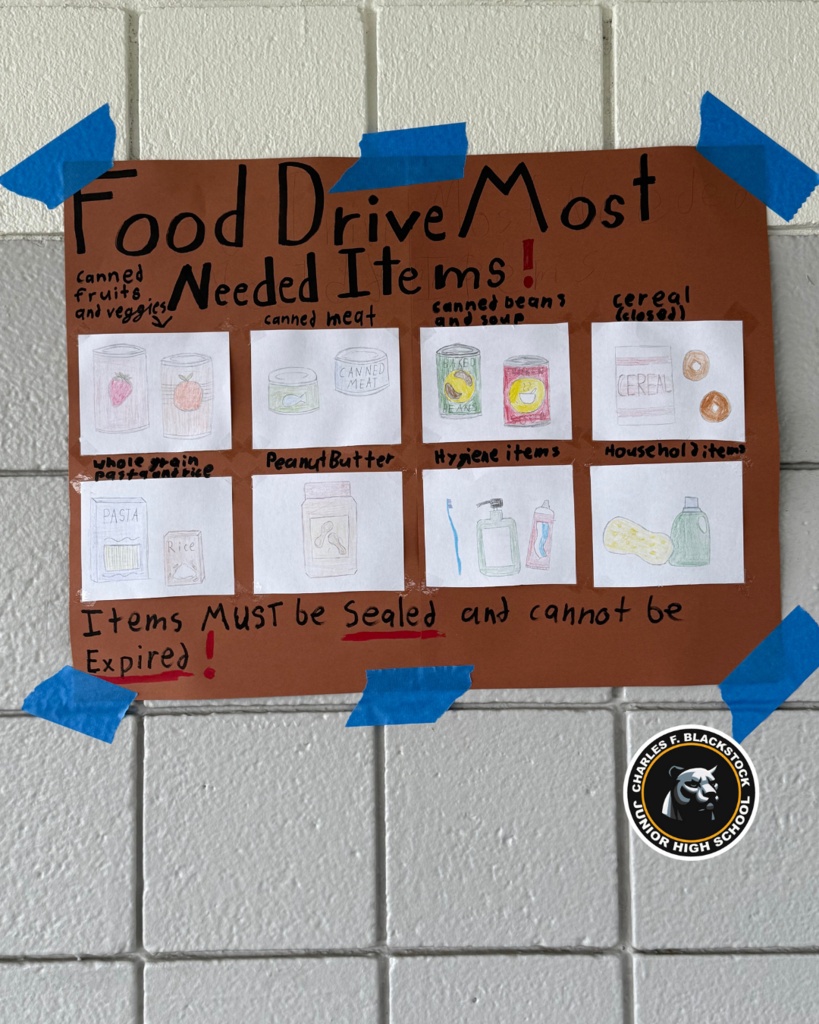 Food Drive Most
Needed Items!
canned
fruits
and veggies
canned meat
canned beans
and soup
cereal
(closed)
CANNED
MEAT
BAKED
BEANS
CEREAL
whole grain
pasta and rice
Peanut Butter
Hygiene items
Household items
PASTA
Rice
Items MUST be Sealed and cannot be
Expired!
CHARLES F. BLACKSTOCK
JUNIOR HIGH SCHOOL